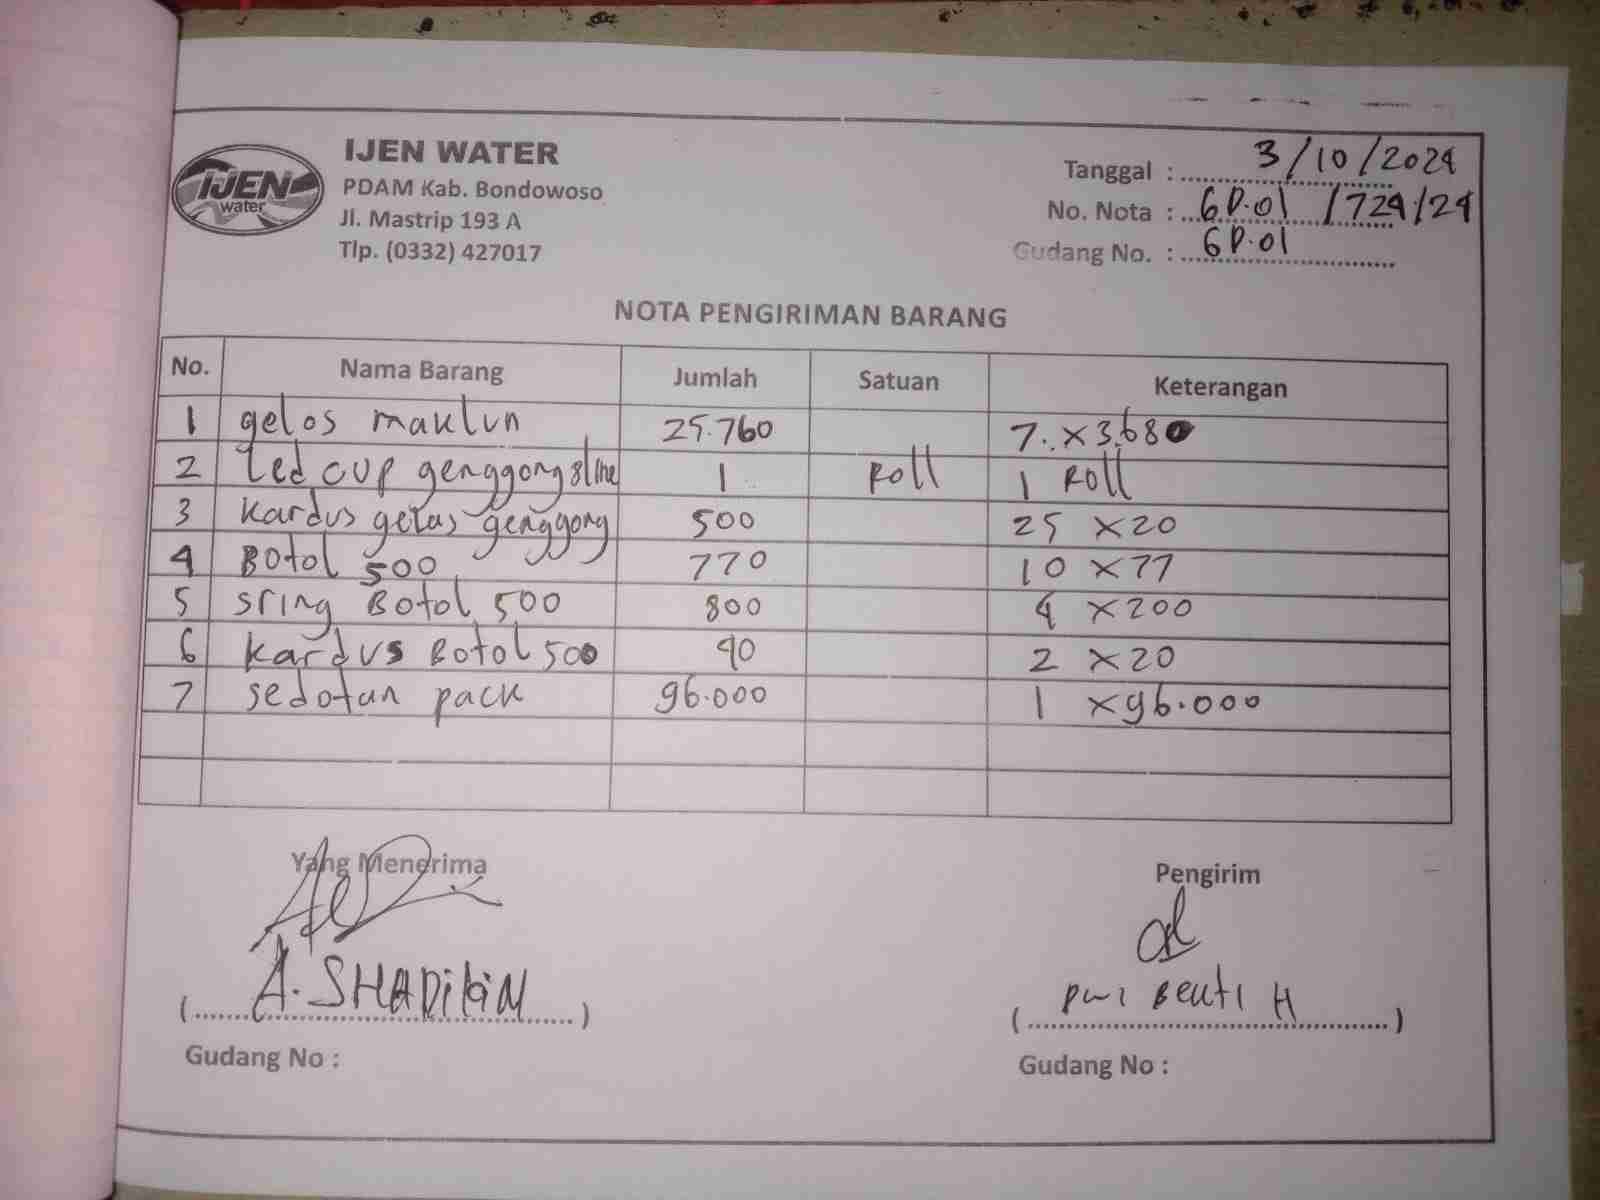 IJEN WATER
IJEN water
PDAM Kab. Bondowoso
Jl. Mastrip 193 A
Tlp. (0332) 427017
Tanggal : 3/10/2024
No. Nota : GD.01 /724/24
Gudang No. : GD.01
NOTA PENGIRIMAN BARANG
No. Nama Barang Jumlah Satuan Keterangan
1 gelas maklun 25.760 7. x 3.680
2 Led cup genggong 8 line 1 Roll 1 Roll
3 kardus gelas genggong 500 25 x 20
4 Botol 500 770 10 x 77
5 sring Botol 500 800 4 x 200
6 kardus Botol 500 40 2 x 20
7 sedotan pack 96.000 1 x 96.000
Yang Menerima
Pengirim
(A. SHADIKIN)
(Dwi H)
Gudang No :
Gudang No :